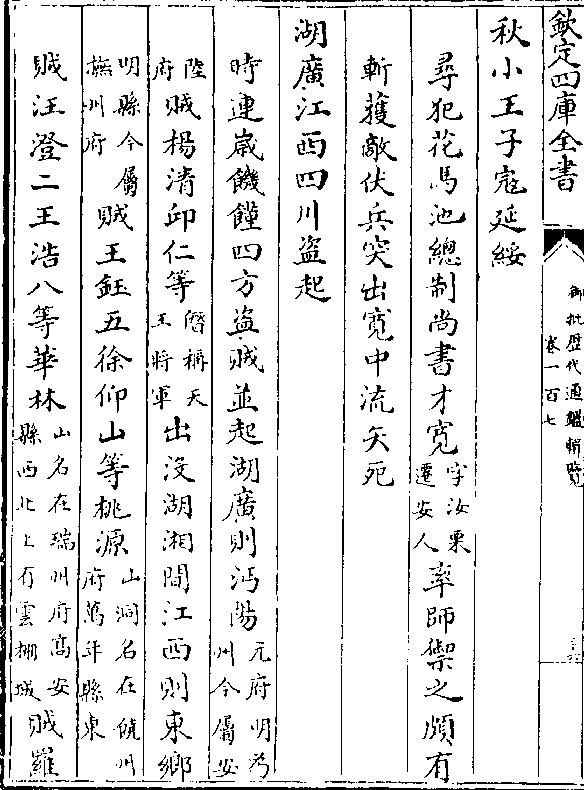 欽定四庫全書
御批歴代通鑑輯覽
卷一百七
秋小王子宼延綏
尋犯花馬池總制尚書才寛字汝栗遷安人率師禦之頗有
斬獲敵伏兵突出寛中流矢死
湖廣江西四川盜起
時連嵗饑饉四方盜賊並起湖廣則沔陽元府明為州今屬安
陸府賊楊清邱仁等僭稱天王將軍出沒湖湘間江西則東鄉
明縣今屬撫州府賊王鈺五徐仰山等桃源山洞名在饒州府萬年縣東
賊汪澄二王浩八等華林山名在瑞州府髙安縣西北上有雲棚城賊羅